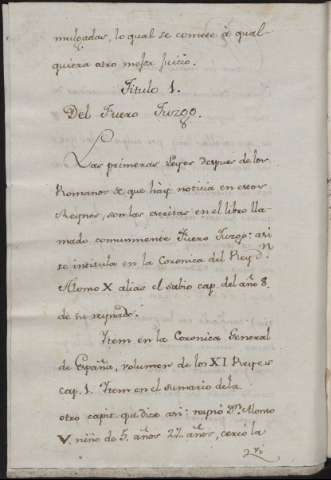 mulgadas, lo qual se comete à qual-
quiera otro mejor juicio.
Titulo 1.
Del Fuero Juzgo.
Las primeras Leyes despues de los
Romanos de que hay noticia en estos
Reynos, son las escritas en el libro lla-
mado comunmente Fuero Juzgo: asi
se intitula en la Coronica del Rey Dn.
Alonso X alias el sabio cap. del año 8.
de su reynado.
Item en la Coronica General
de España, volumen de los XI Reyes
cap. 1. Item en el sumario de la
otro capit. que dice asi: reynó Dn. Alonso
V. niño de 5. años 27. años, cercó la